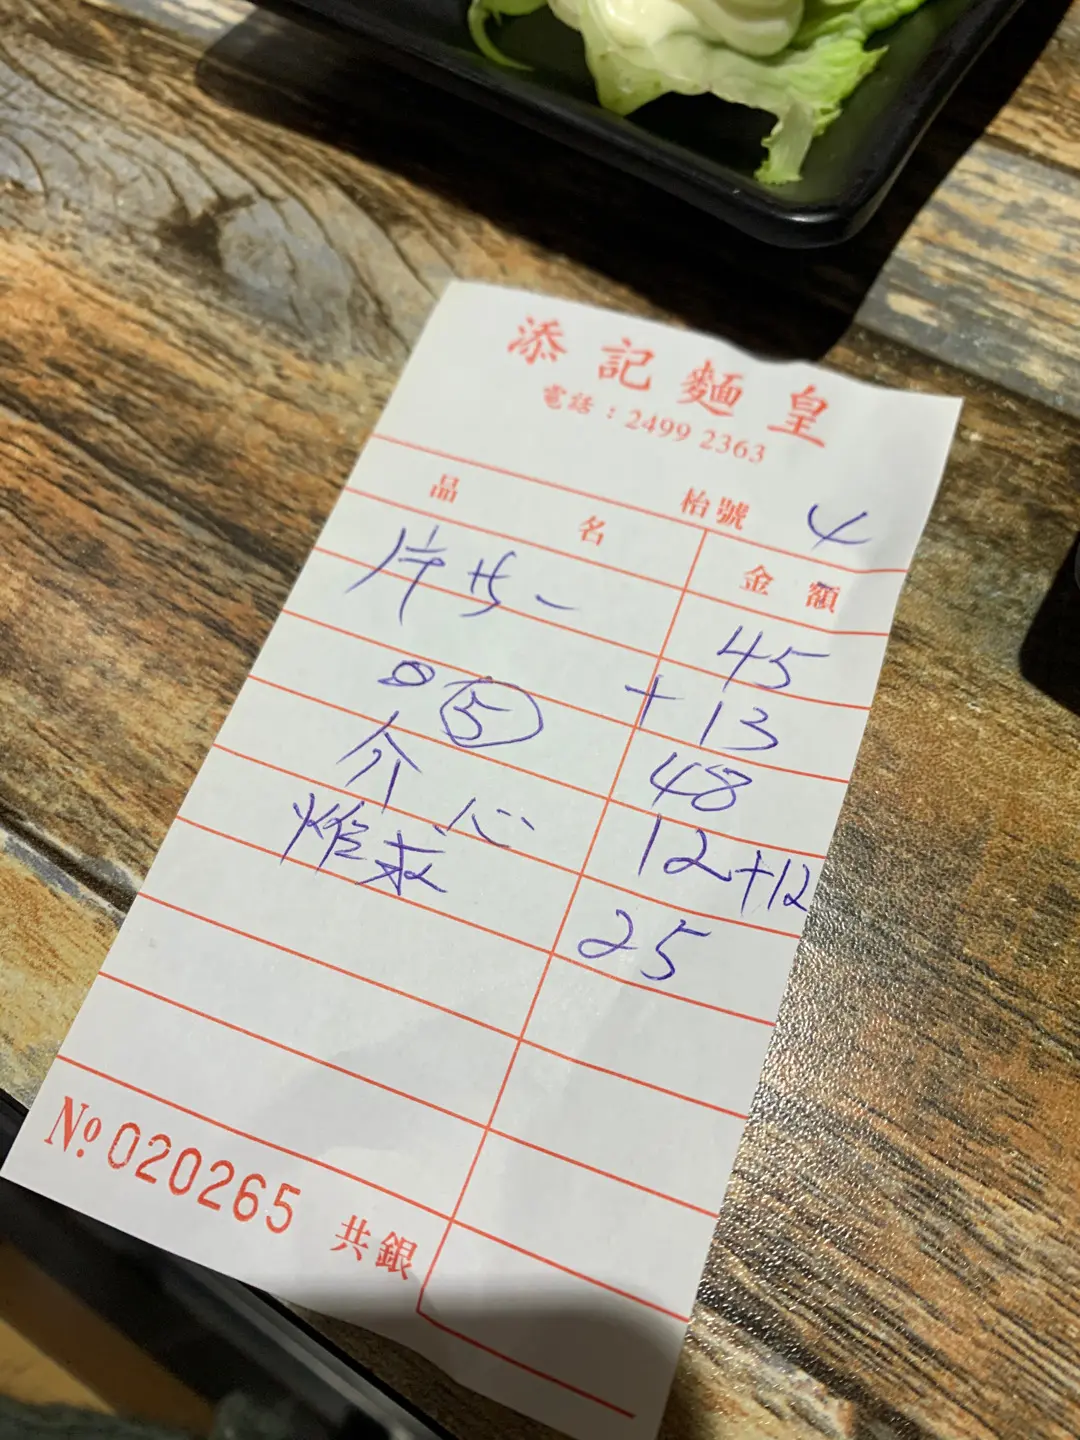 添記麵皇
電話：2499 2363
枱號 4
品名 金額
45
+ 13
⑤ 48
介 心 12+12
炸 25
No. 020265 共銀